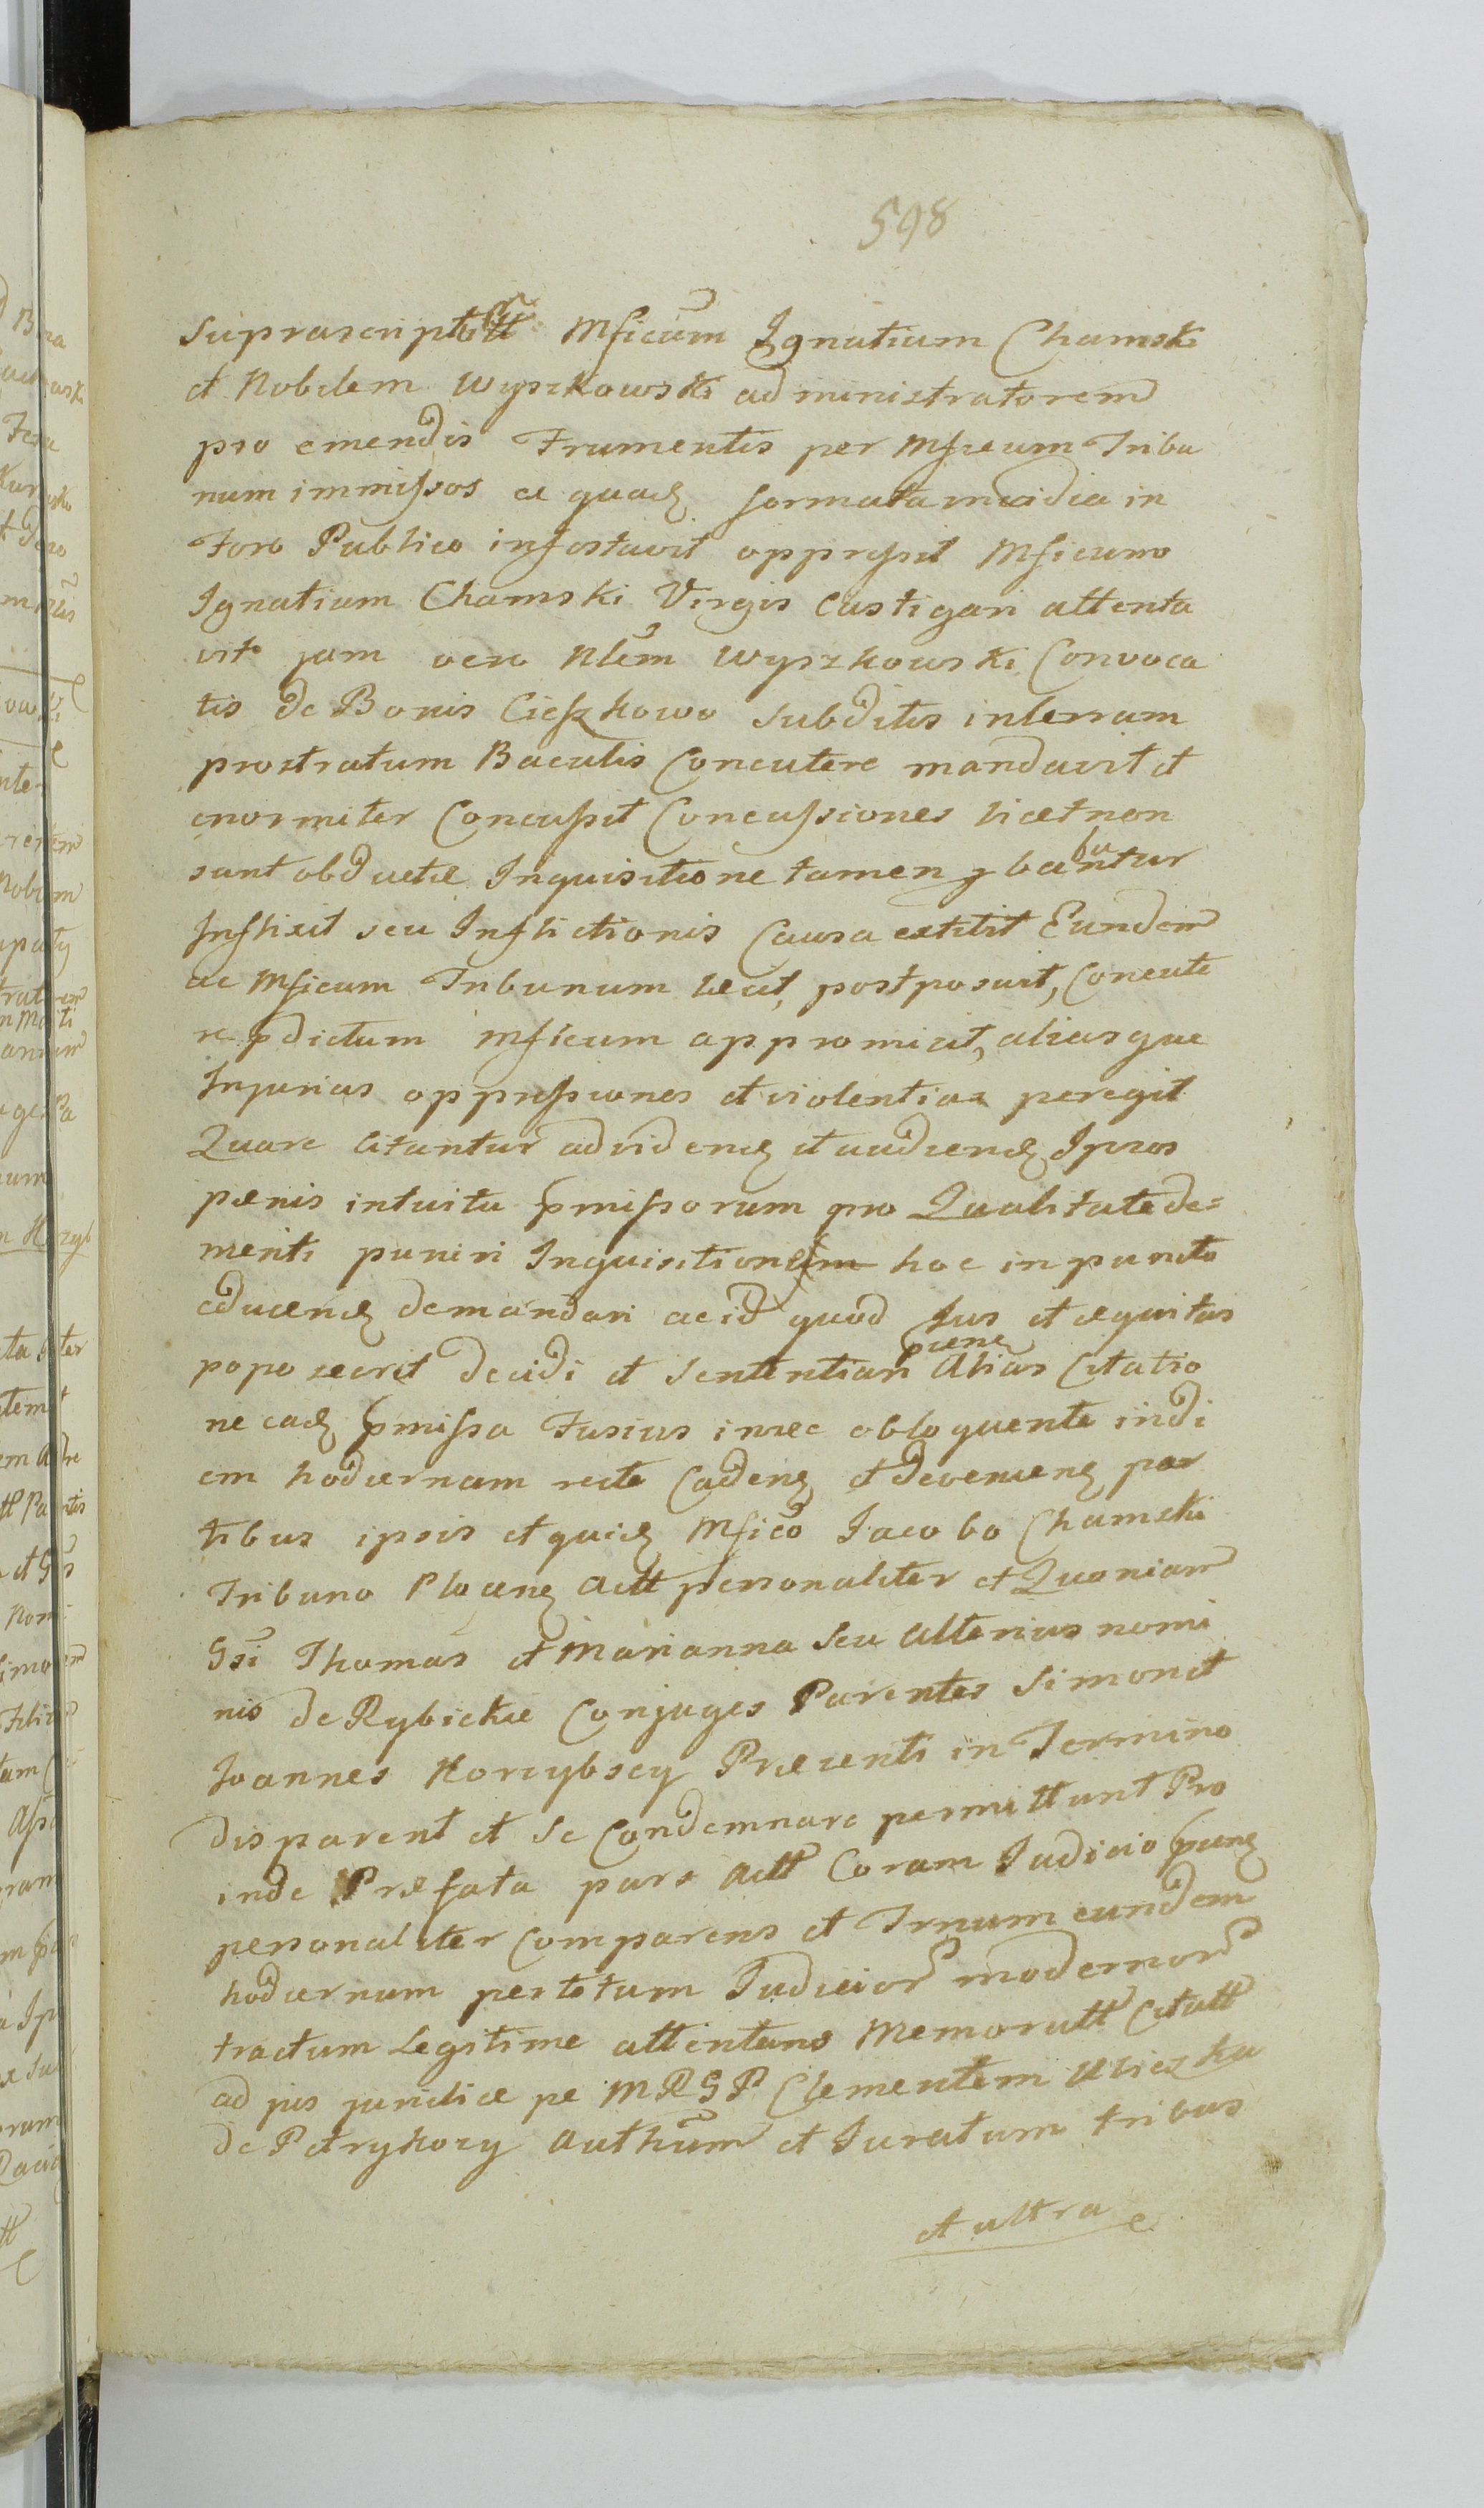 598
Suprascriptott Mficum Ignatium Chamski
et Nobilem Wyszkowski administratorem
pro emendis Frumentis per Mficum Tribu
num immissos ac quasq formata insidia in
Foro Publico infestavit oppressit Mficum
Ignatium Chamski Virgis Castigari attenta
vit jam vero Nlem Wyszkowski Convoca
tis de Bonis Cieszkowo Subditis interram
prostratum Baculis Concutere mandavit et
enormiter Concussit Concussiones licet non
sunt obductæ Inquisitione tamen pbabuntur
Inflixit seu Inflictionis Causa extitit Eundem
ac Mficum Tribunum læsit, postposuit, Concute
re pdictum Mficum appromisit, aliasque
Injurias oppressiones et violentias peregit
Quare Citantur ad videnq et audienq Ipsos
pænis intuitu pmissorum pro Qualitate de=
meriti puniri Inquisitionem hoc in puncto
educenq demandari ac id quod Jus et æquitas
poposcerit decidi et Sententiari Alias psene Citatio
ne eadq pmissa Fusius in se obloquente in di
em hodiernam recte Cadenq et devenienq par
tibus ipsis et quidq Mfico Jacobo Chamski
Tribuno Plocenq Actt personaliter et Quoniam
Gsi Thomas et Marianna Seu alterius nomi
nis de Rybickie Conjuges Parentes Simon et
Joannes Korzybscy Præsenti in Termino
disparent et Se Condemnare permittunt Pro
inde Præfata pars Actt Coram Judicio psenq
personaliter Comparens et Trnum eundem
hodiernum per totum Judicior modernor
tractum Legitime attentans Memoratt Citatt
ad jus juridice pe MRGP Clementem Uliezka
de Petrykozy Authum et Juratum tribus
et ultra